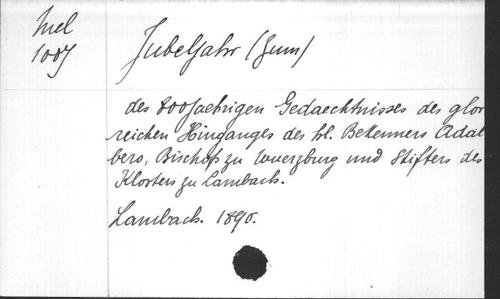 Mel
1087
Jubeljahr (Zum)
des 800jaehrigen Gedaechtnisses des glor
reichen Hinganges des hl. Bekenners Adal
bero, Bischofs zu Wuerzburg und Stifters des
Klosters zu Lambach.
Lambach. 1890.